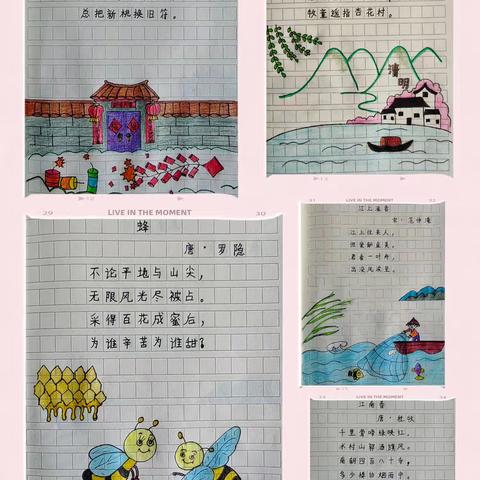 总把新桃换旧符。
牧童遥指杏花村。
清明
29 LIVE IN THE MOMENT 30
蜂
唐·罗隐
不论平地与山尖，
无限风光尽被占。
采得百花成蜜后，
为谁辛苦为谁甜?
31 LIVE IN THE MOMENT 32
江上渔者
宋·范仲淹
江上往来人，
但爱鲈鱼美。
君看一叶舟，
出没风波里。
33 LIVE IN THE MOMENT 34
江南春
唐·杜牧
千里莺啼绿映红，
水村山郭酒旗风。
南朝四百八十寺，
多少楼台烟雨中。